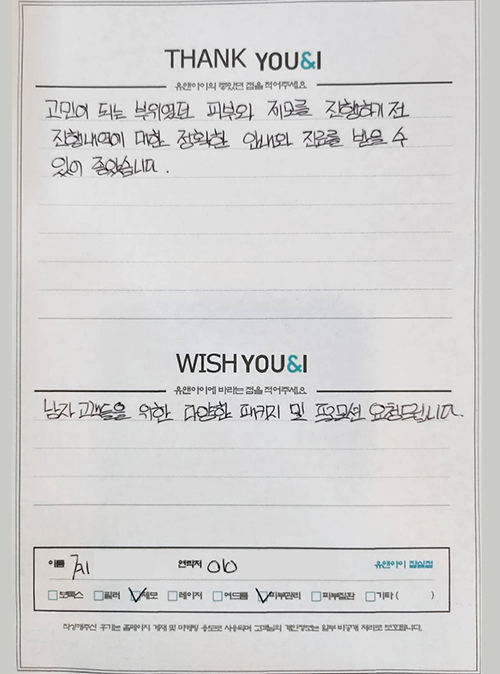 THANK YOU&I
유앤아이의 좋았던 점을 적어주세요
고민이 되는 부위였던 피부와 제모를 진행하기 전
진행내역에 대한 정확한 안내와 진료를 받을 수
있어 좋았습니다.
WISH YOU&I
유앤아이에 바라는 점을 적어주세요
남자 고객들을 위한 다양한 패키지 및 프로모션 요청드립니다.
이름 연락처 010 유앤아이 잠실점
보톡스 필러 제모 레이저 여드름 피부관리 피부질환 기타 ( )
작성해주신 후기는 홈페이지 게재 및 마케팅 용도로 사용되며 고객님의 개인정보는 일부 비공개 처리로 보호됩니다.